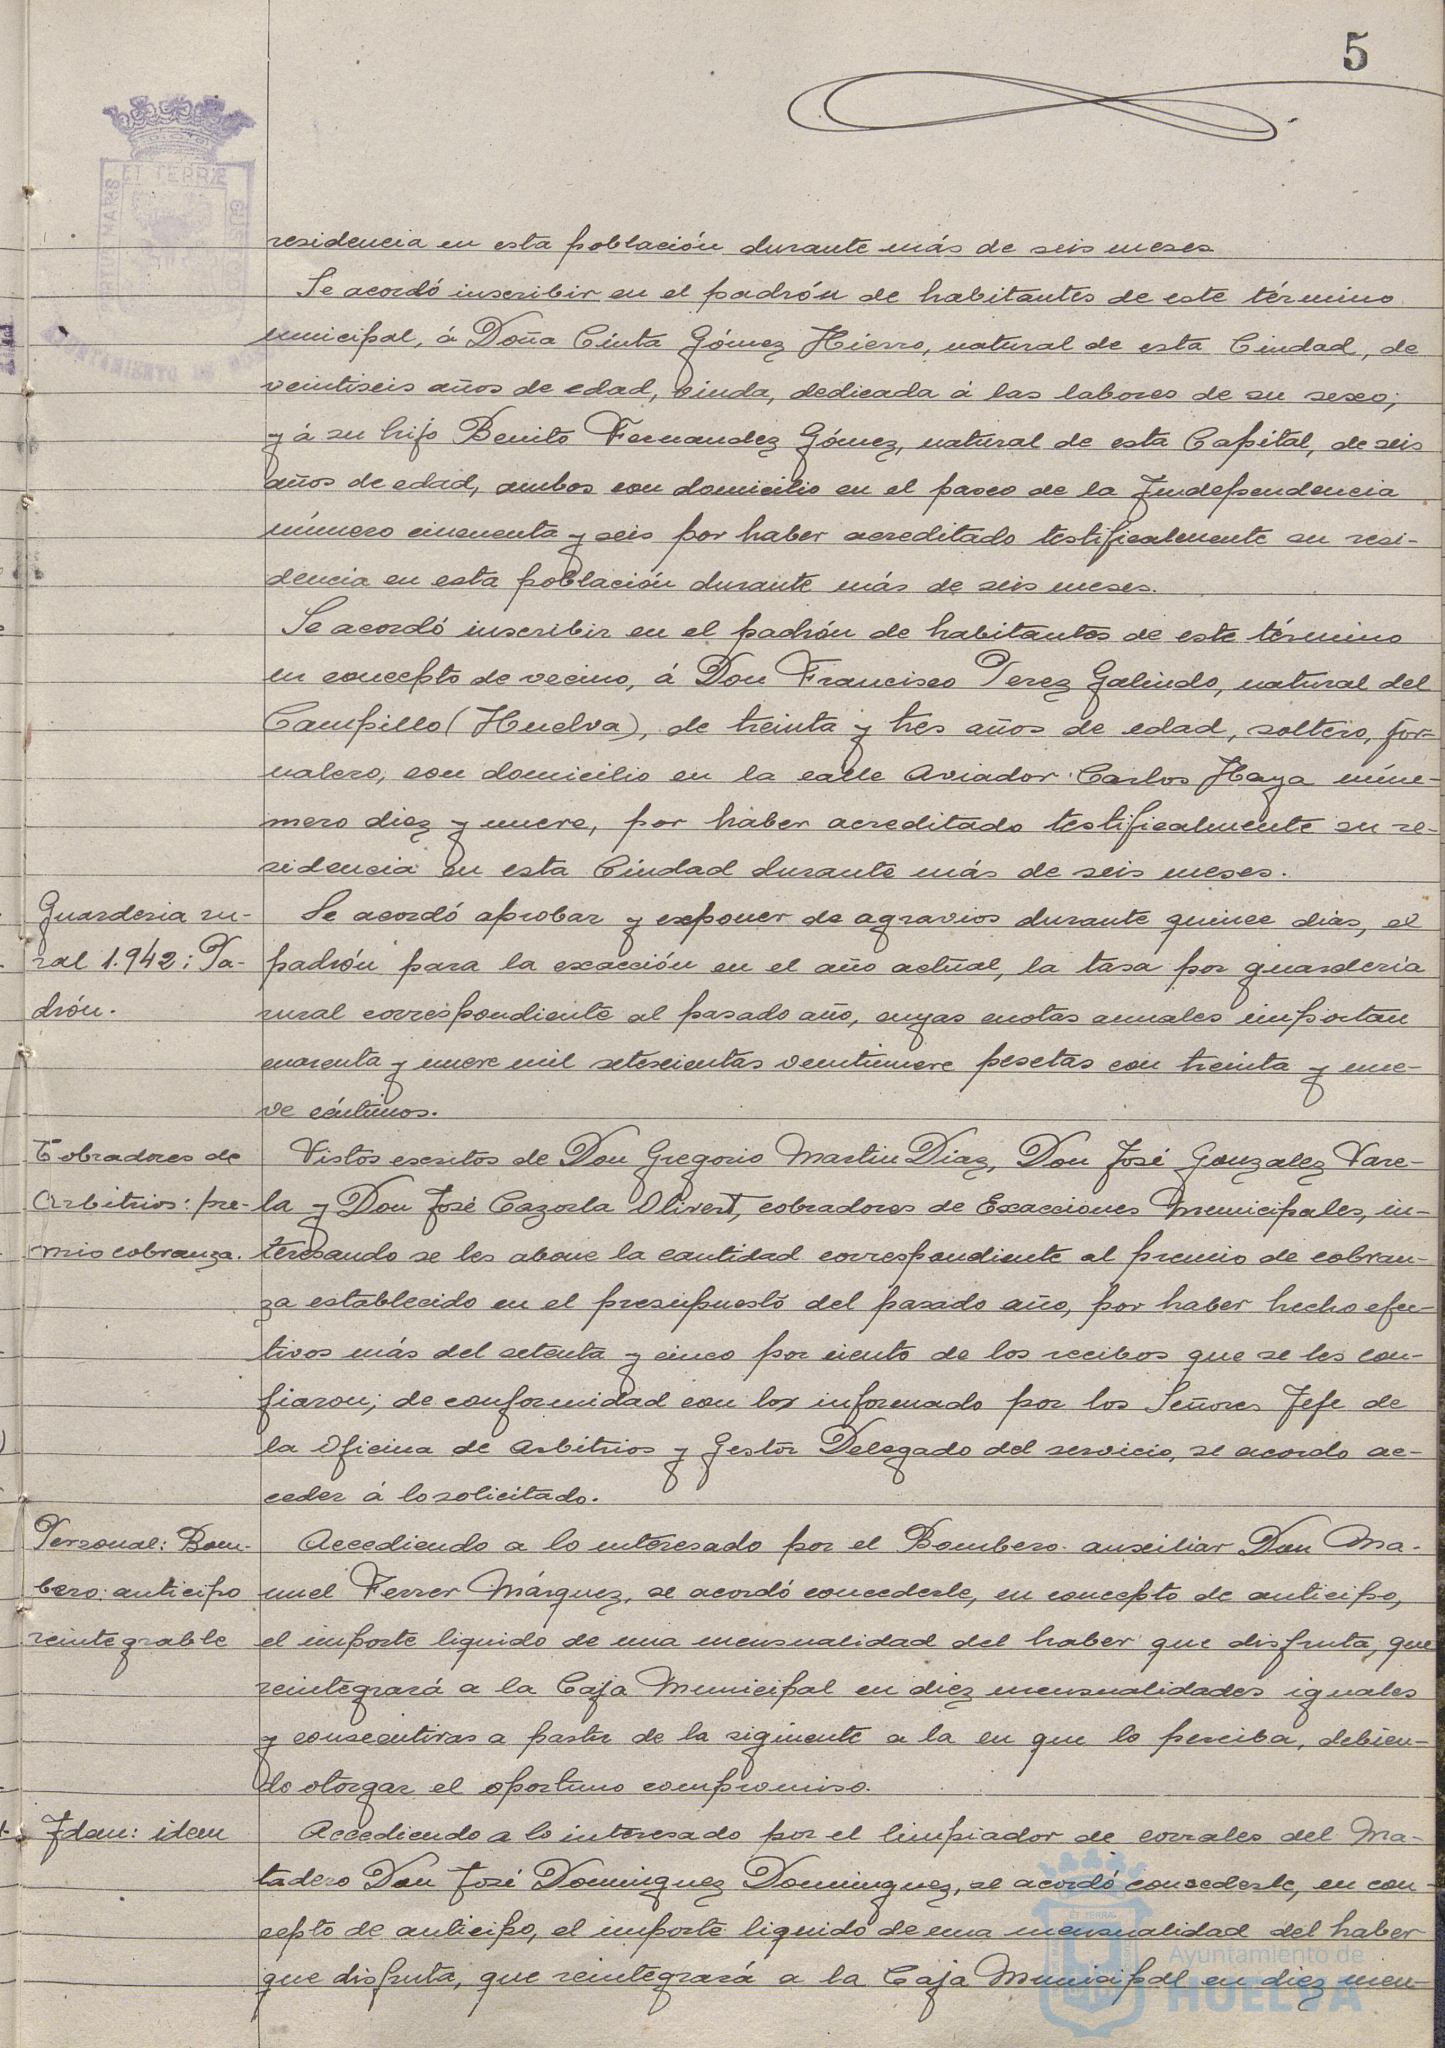 5
ET TERRÆ
residencia en esta población durante más de seis meses.
Se acordó inscribir en el padrón de habitantes de este término
municipal, á Doña Cinta Gómez Hierro, natural de esta Ciudad, de
veintiseis años de edad, viuda, dedicada á las labores de su sexo;
y á su hijo Benito Fernandez Gómez, natural de esta Capital, de seis
años de edad, ambos con domicilio en el paseo de la Independencia
número cincuenta y seis por haber acreditado testificalmente su resi-
dencia en esta población durante más de seis meses.
Se acordó inscribir en el padrón de habitantes de este término
en concepto de vecino, á Don Francisco Perez Galindo, natural del
Campillo (Huelva), de treinta y tres años de edad, soltero, jor-
nalero, con domicilio en la calle Aviador Carlos Haya núme-
mero diez y nueve, por haber acreditado testificalmente su re-
sidencia en esta Ciudad durante más de seis meses.
Guarderia ru-
ral 1.942: Pa-
drón.
Se acordó aprobar y exponer de agravios durante quince dias, el
padrón para la exacción en el año actual, la tasa por guarderia
rural correspondiente al pasado año, cuyas cuotas anuales importan
cuarenta y nueve mil setescientas veintinueve pesetas con treinta y nue-
ve céntimos.
Cobradores de
Arbitrios: pre-
mio cobranza.
Vistos escritos de Don Gregorio Martin Diaz, Don José Gonzalez Vare-
la y Don José Cazorla Olivert, cobradores de Exacciones Municipales, in-
teresando se les abone la cantidad correspondiente al premio de cobran-
za establecido en el presupuesto del pasado año, por haber hecho efec-
tivos más del setenta y cinco por ciento de los recibos que se les con-
fiaron; de conformidad con lo informado por los Señores Jefe de
la Oficina de Arbitrios y Gestor Delegado del servicio, se acordo ac-
ceder á lo solicitado.
Personal: Bom-
bero: anticipo
reintegrable
Accediendo a lo interesado por el Bombero auxiliar Don Ma-
nuel Ferrer Márquez, se acordó concederle, en concepto de anticipo,
el importe liquido de una mensualidad del haber que disfruta, que
reintegrará a la Caja Municipal en diez mensualidades iguales
y consecutivas a partir de la siguiente a la en que lo perciba, debien-
do otorgar el oportuno compromiso.
Idem: idem
Accediendo a lo interesado por el limpiador de corrales del Ma-
tadero Don José Dominguez Dominguez, se acordó concederle, en con-
cepto de anticipo, el importe liquido de una mensualidad del haber
que disfruta, que reintegrará a la Caja Municipal en diez men-
Ayuntamiento de
HUELVA